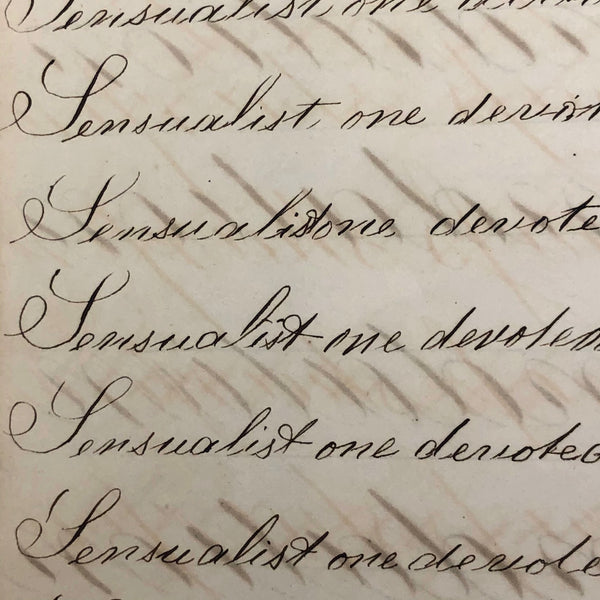 Sensualist one
Sensualist one
Sensualist one devote
Sensualist one devoted
Sensualist one devoted
Sensualist one devote